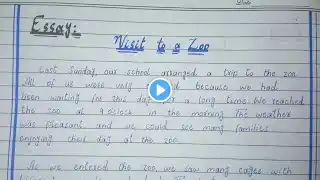 Essay:
Visit to a Zoo
Last Sunday, our school arranged a trip to the zoo
All of us were very because we had
been waiting for this day for a long time. We reached
the zoo at 9 o'clock in the morning. The weather
was pleasant and we could see many families
enjoying their day at the zoo.
As we entered the zoo, we saw many cages with